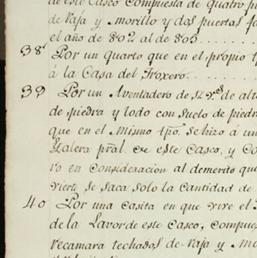 de este Casco compuesta de quatro p
de Vaja y Morillo y dos puertas fo
el año de 802 al de 803
38 Por un Quarto que en el propio t
à la Casa del Troxero.
39 Por un Aventadero de 52 vs de alto
de piedra y lodo con suelo de piedr
que en el mismo tpo. se hizo à un
Galera pral de este Casco, y Co
vo en Consideración al demerito que
vierte se saca solo la Cantidad de
40 Por una Casita en que vive el
de la Labor de este Casco, compues
recamara techados de Vaja y Mo